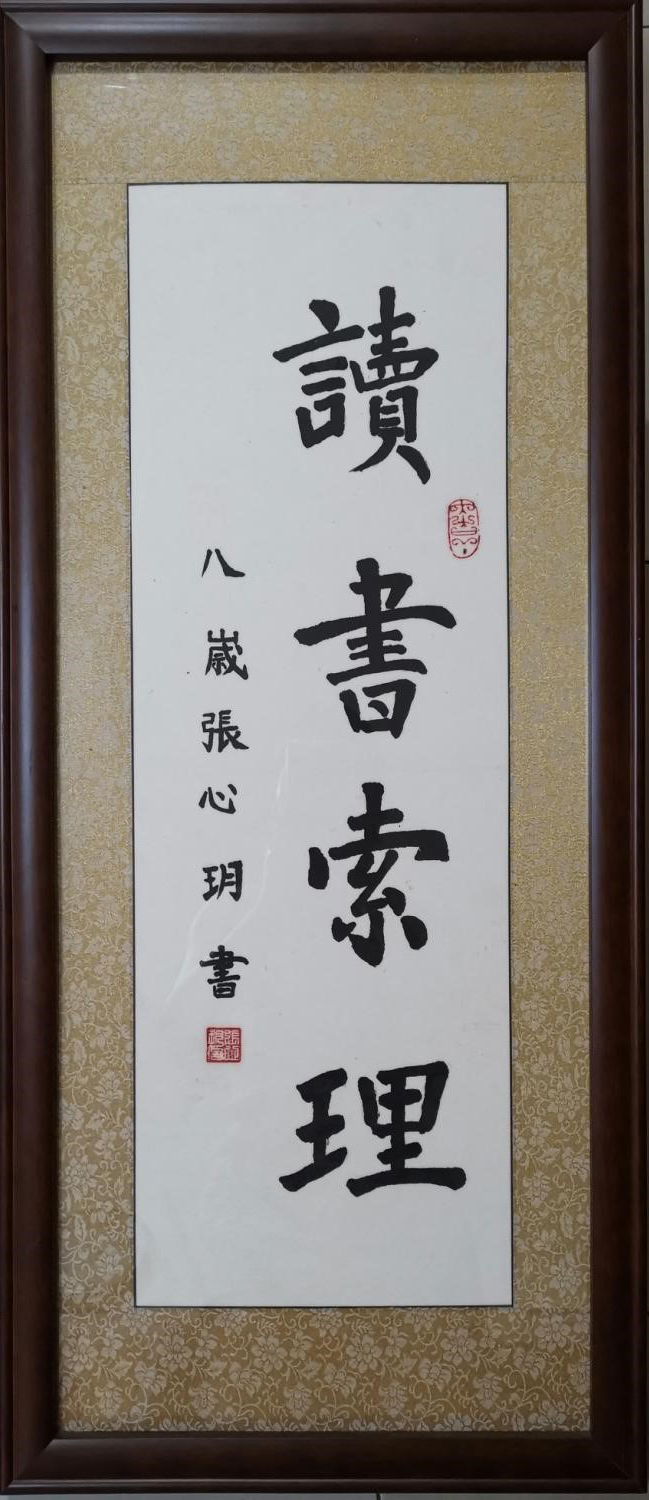 讀書索理
八歲張心玥書